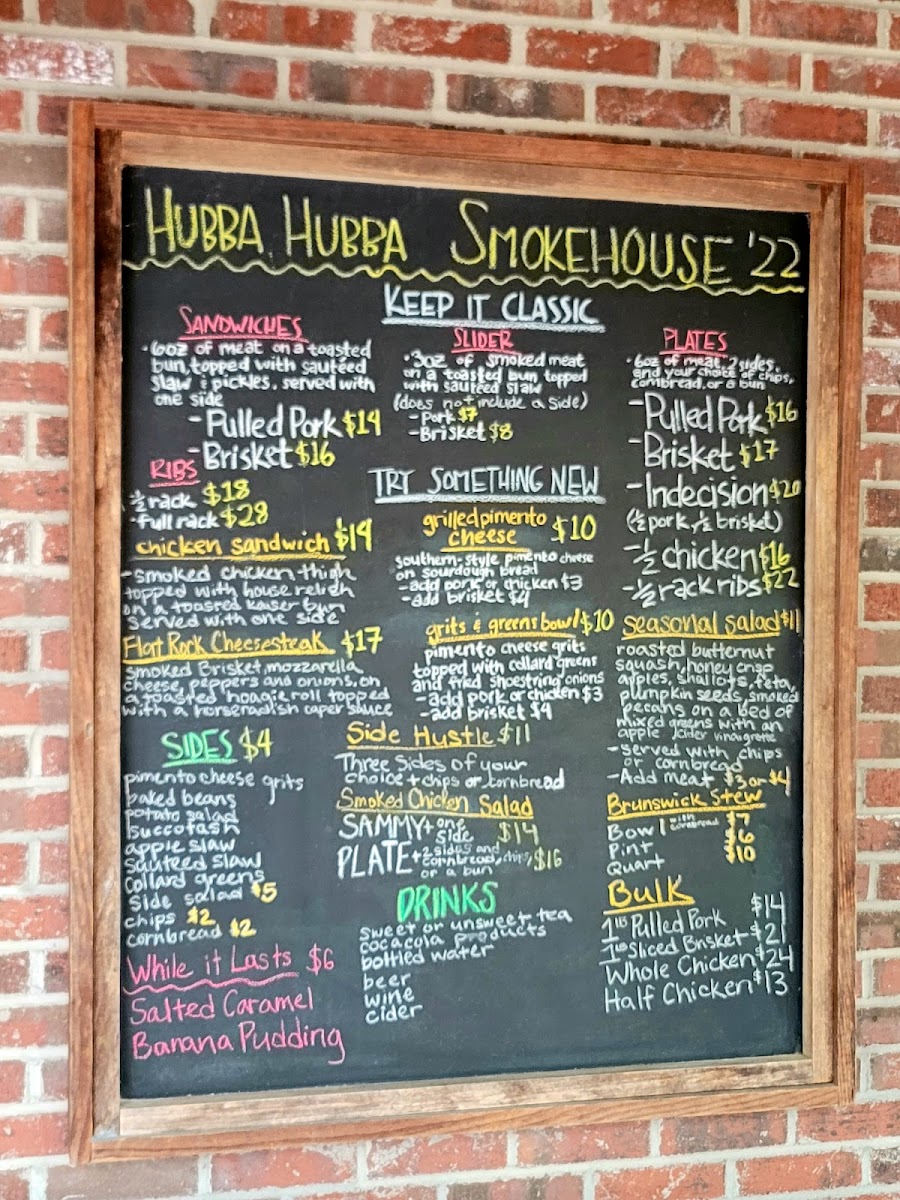 HUBBA HUBBA SMOKEHOUSE '22
KEEP IT CLASSIC
SANDWICHES
·6oz of meat on a toasted
bun, topped with sautéed
slaw & pickles. served with
one side
-Pulled Pork $14
-Brisket $16
RIBS
·½ rack $18
·full rack $28
SLIDER
·3oz of smoked meat
on a toasted bun topped
with sautéed slaw
(does not include a side)
-Pork $7
-Brisket $8
PLATES
·6oz of meat, 2 sides,
and your choice of chips,
cornbread, or a bun
-Pulled Pork $16
-Brisket $17
-Indecision $20
(½ pork, ½ brisket)
-½ chicken $16
-½ rack ribs $22
TRY SOMETHING NEW
chicken sandwich $14
-smoked chicken thigh
topped with house relish
on a toasted kaiser bun
served with one side
Flat Rock Cheesesteak $17
smoked Brisket, mozzarella
cheese, peppers and onions, on
a toasted hoagie roll topped
with a horseradish caper sauce
grilled pimento
cheese $10
southern-style pimento cheese
on sourdough bread
-add pork or chicken $3
-add brisket $4
grits & greens bowl $10
pimento cheese grits
topped with collard greens
and fried shoestring onions
-add pork or chicken $3
-add brisket $4
seasonal salad $11
roasted butternut
squash, honey crisp
apples, shallots, feta,
pumpkin seeds, smoked
pecans on a bed of
mixed greens with an
apple cider vinaigrette
-served with chips
or cornbread
-Add meat $3 or $4
SIDES $4
pimento cheese grits
baked beans
potato salad
succotash
apple slaw
sauteed slaw
collard greens
side salad $5
chips $2
cornbread $2
Side Hustle $11
Three sides of your
choice + chips or cornbread
Smoked Chicken Salad
SAMMY + one
side $14
PLATE + 2 sides and
cornbread, chips,
or a bun $16
Brunswick Stew
Bowl with cornbread $7
Pint $6
Quart $10
DRINKS
sweet or unsweet tea
cocacola products
bottled water
beer
wine
cider
Bulk
1lb Pulled Pork $14
1lb Sliced Brisket $21
Whole Chicken $24
Half Chicken $13
While it Lasts $6
Salted Caramel
Banana Pudding